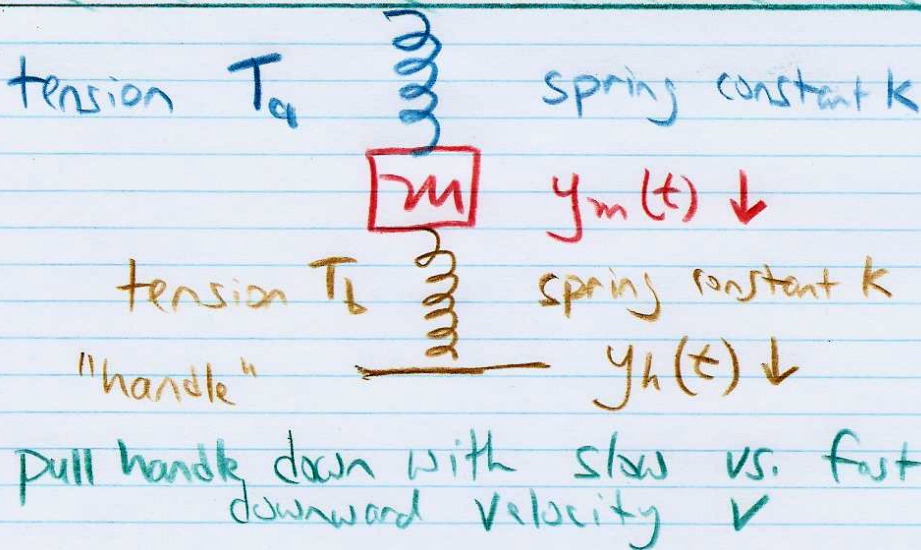 tension Ta spring constant k
m ym(t) ↓
tension Tb spring constant k
"handle" yh(t) ↓
pull handle down with slow vs. fast
downward velocity v